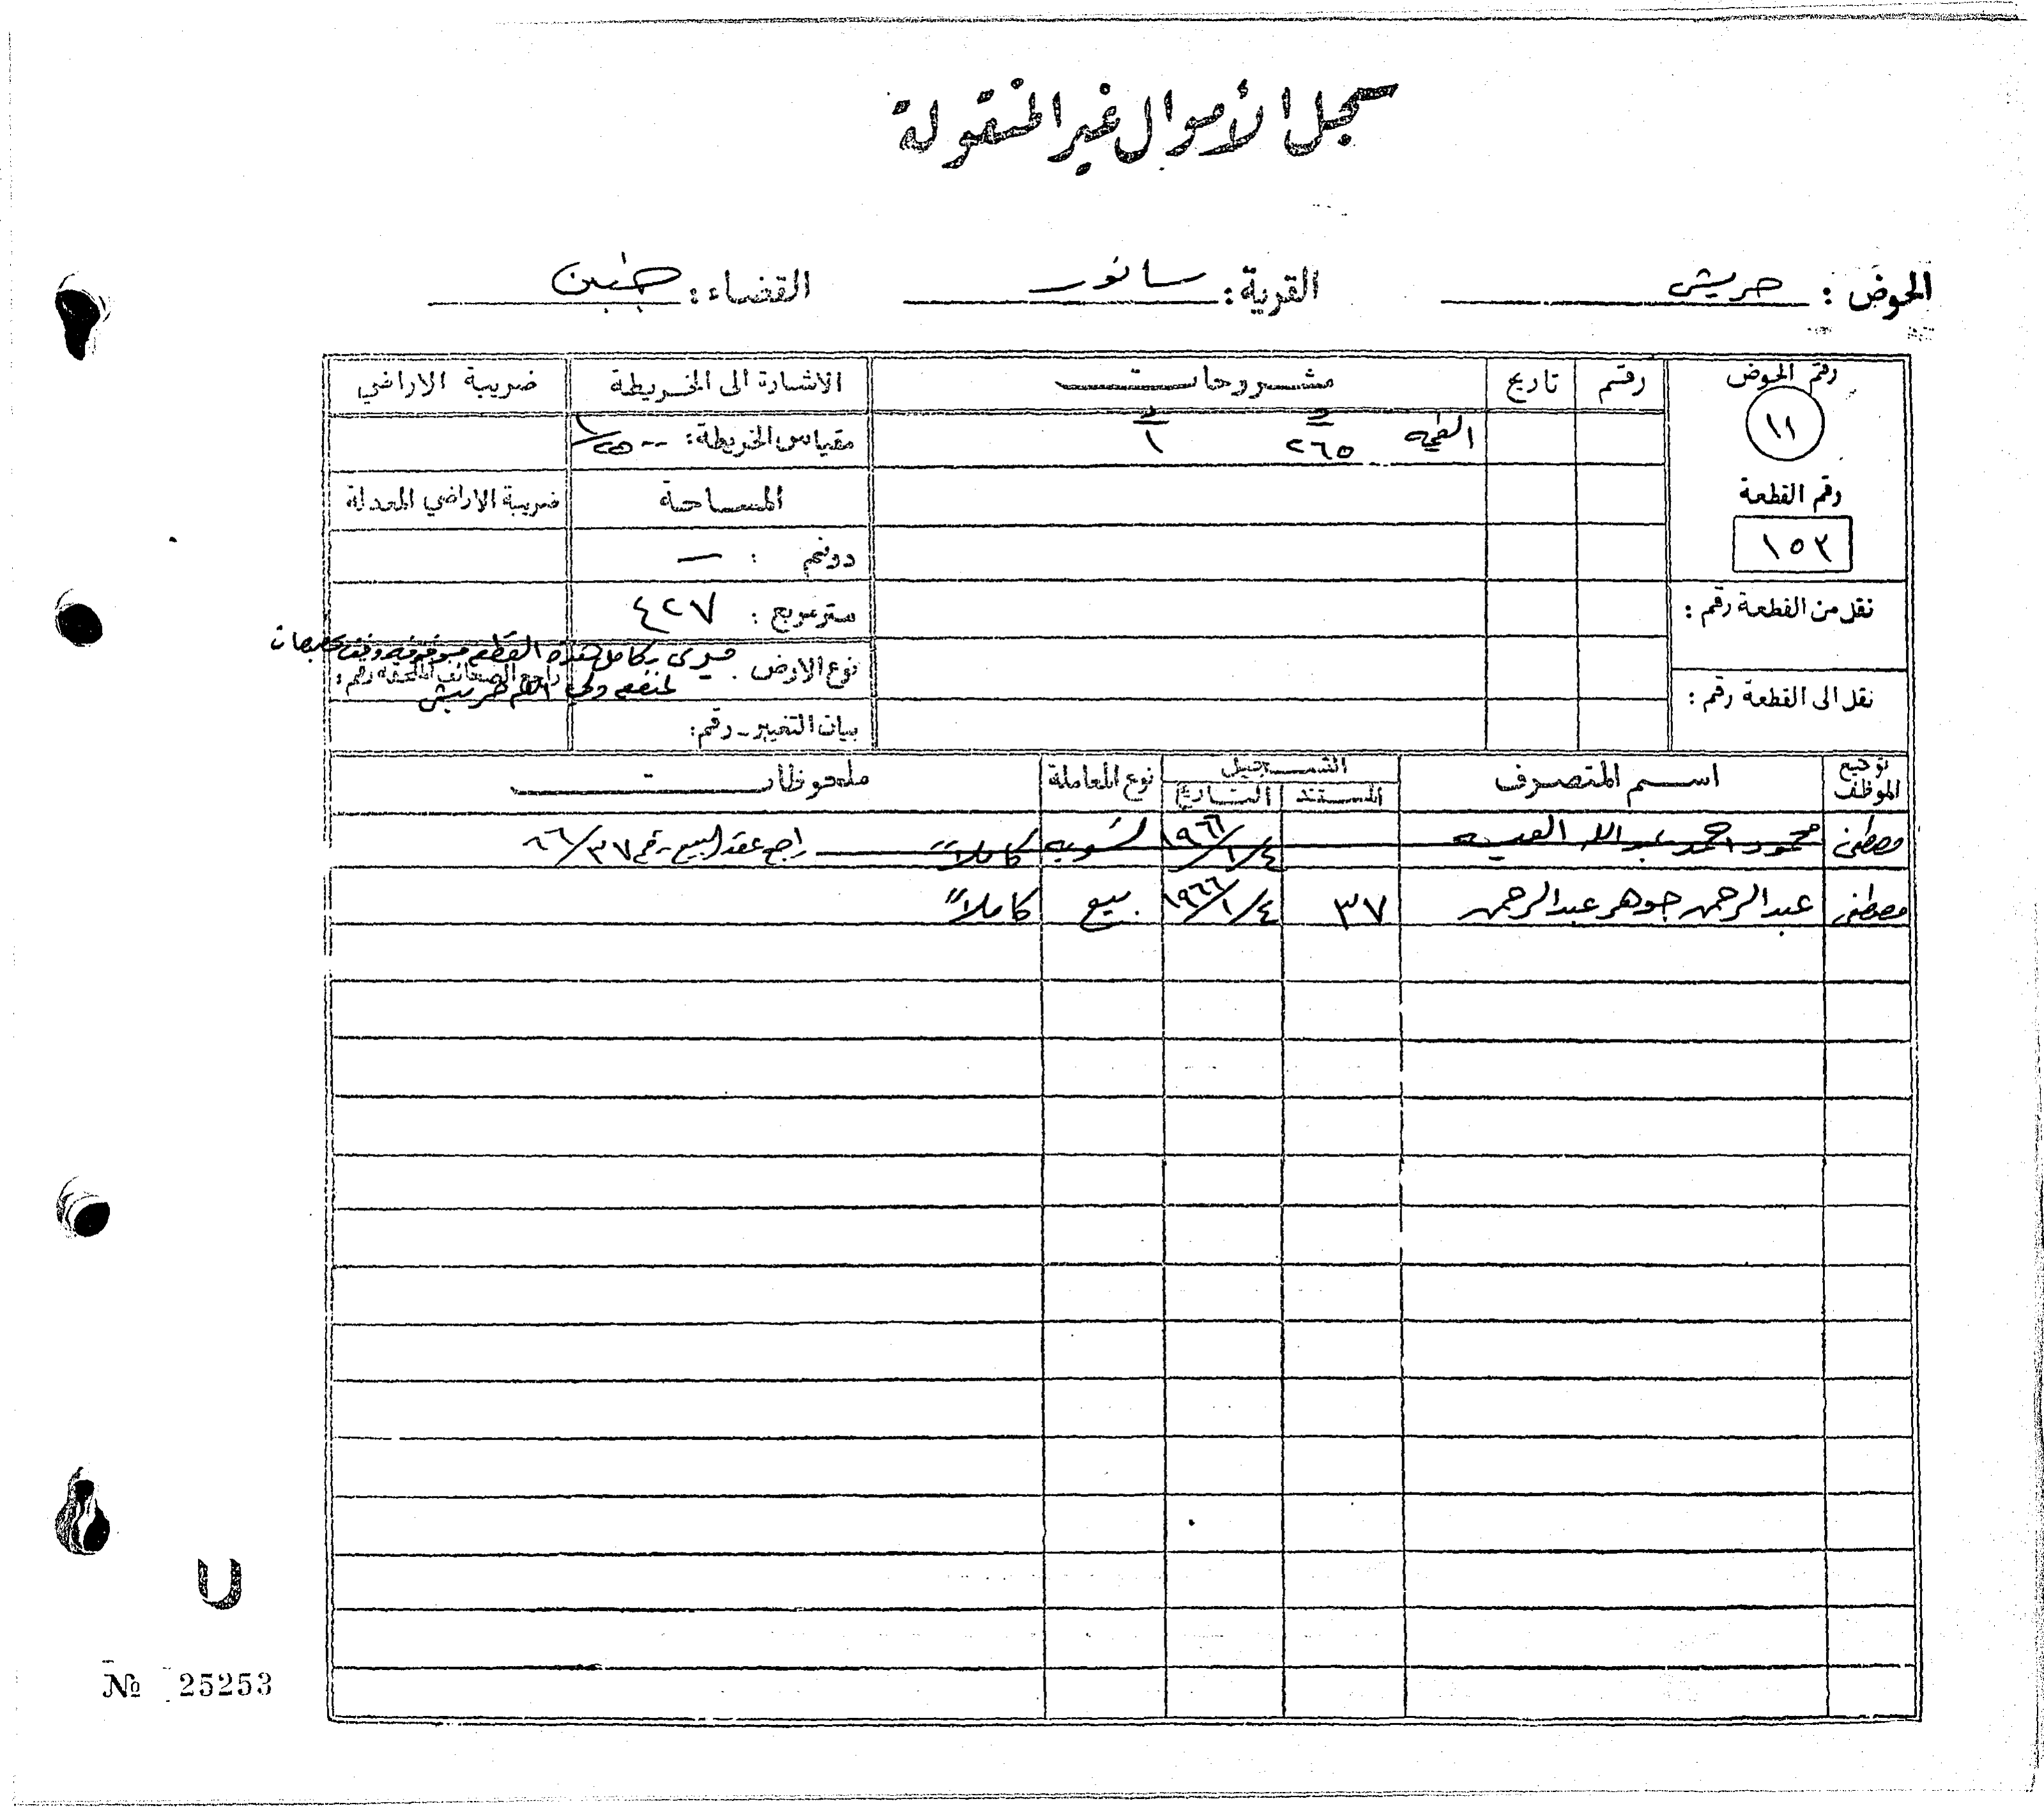 سجل الأموال غير المنقولة
الحوض : حريش القرية : سانور القضاء : جنين
رقم الحوض رقم تاريخ مشروحات الاشارة الى الخريطة ضريبة الاراضي
١١ القيمة ٢٦٥ ١ مقياس الخريطة :
رقم القطعة المساحة ضريبة الاراضي المعدلة
١٥٣ دونم : —
نقل من القطعة رقم : متر مربع : ٤٢٧
نوع الارض . ميري
هذه القطعة موقوفة وقف
راجع الصحائف الملحقة رقم :
لمنفعة ولي الله حريش
نقل الى القطعة رقم :
بيان التغيير - رقم :
توقيع الموظف اسم المتصرف التسجيل نوع المعاملة ملحوظات
المستند التاريخ
مصطفى محمود احمد عبد الله ١٩٦٦/١/٤ تسوية كاملاً راجع عقد البيع رقم ٦٦/٣٧
مصطفى عبد الرحمن جوهر عبد الرحمن ٣٧ ١٩٦٦/١/٤ بيع كاملاً
№ 25253